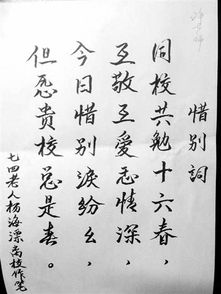 惜别詞
同校共勉十六春，
互敬互爱忘情深，
今日惜别淚纷纷，
但愿贵校总是春。
七四老人杨海漂高校作笔